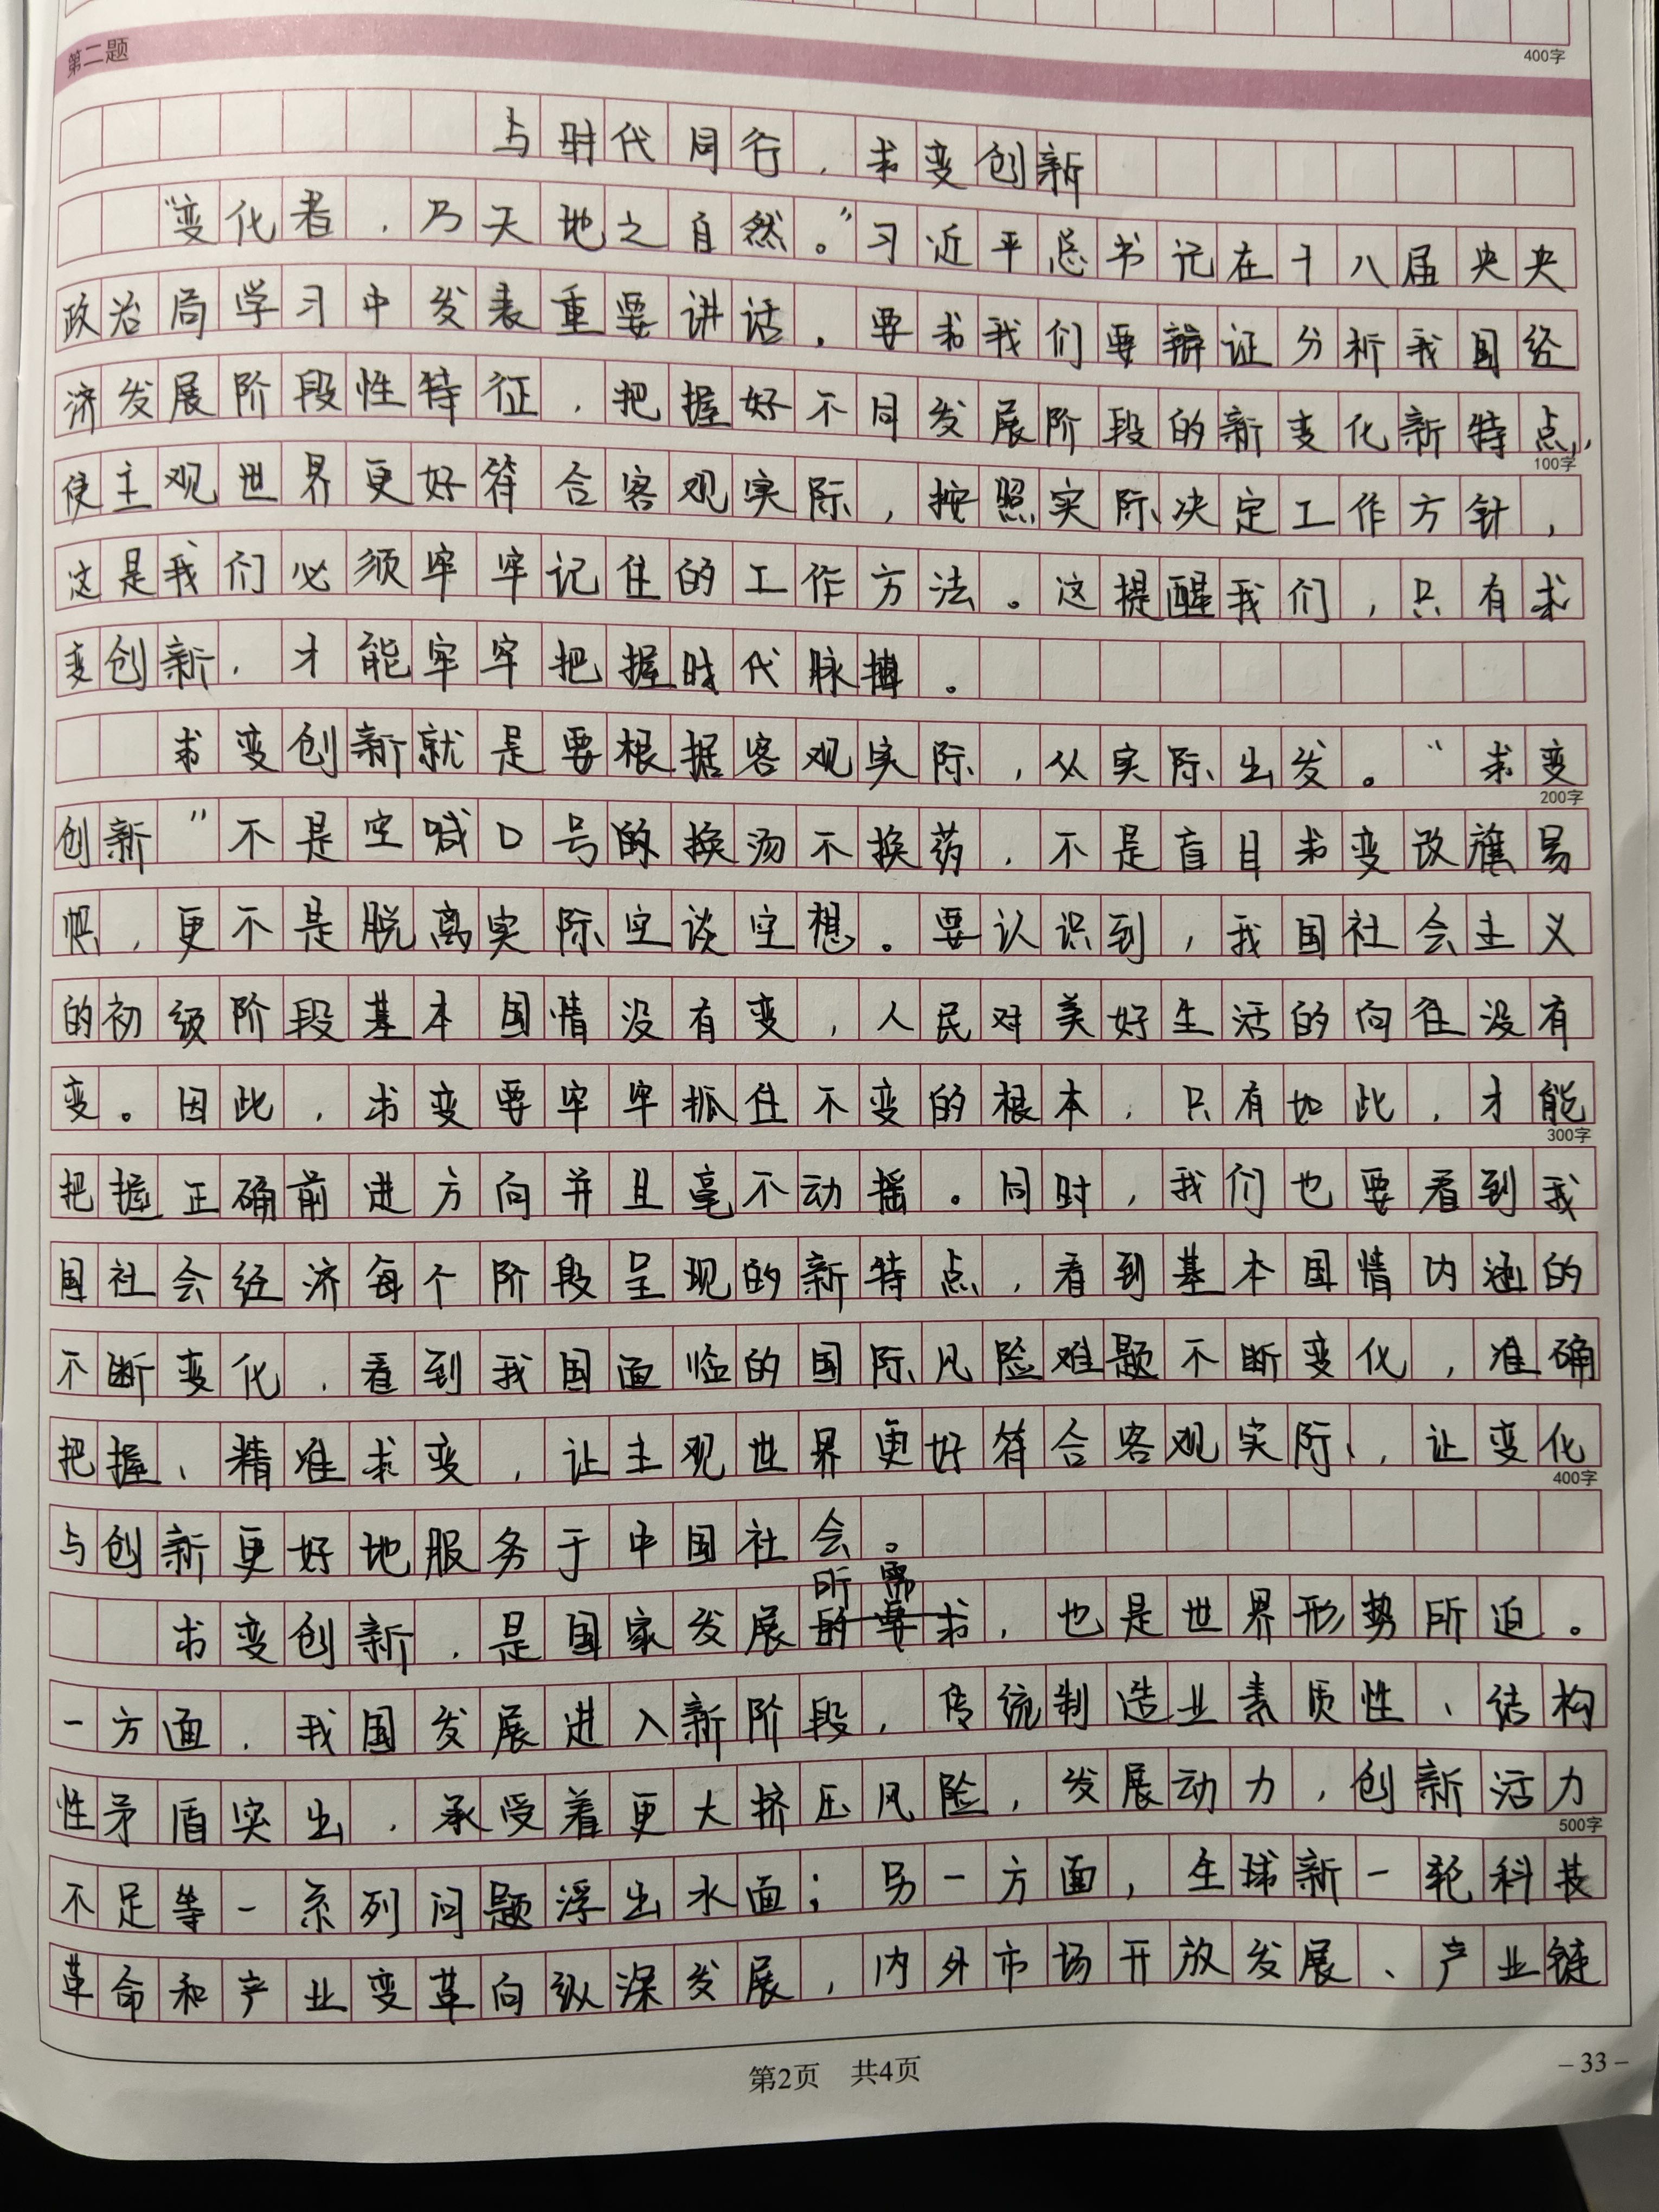 400字
第二题
与时代同行，求变创新
“变化者，乃天地之自然。”习近平总书记在十八届央央
政治局学习中发表重要讲话，要求我们要辩证分析我国经
济发展阶段性特征，把握好不同发展阶段的新变化新特点，
100字
使主观世界更好符合客观实际，按照实际决定工作方针，
这是我们必须牢牢记住的工作方法。这提醒我们，只有求
变创新，才能牢牢把握时代脉搏。
求变创新就是要根据客观实际，从实际出发。“求变
200字
创新”不是空喊口号的换汤不换药，不是盲目求变改旗易
帜，更不是脱离实际空谈空想。要认识到，我国社会主义
的初级阶段基本国情没有变，人民对美好生活的向往没有
变。因此，求变要牢牢抓住不变的根本，只有如此，才能
300字
把握正确前进方向并且毫不动摇。同时，我们也要看到我
国社会经济每个阶段呈现的新特点，看到基本国情内涵的
不断变化，看到我国面临的国际风险难题不断变化，准确
把握、精准求变，让主观世界更好符合客观实际，让变化
400字
与创新更好地服务于中国社会。
所需
求变创新，是国家发展的要求，也是世界形势所迫。
一方面，我国发展进入新阶段，传统制造业素质性、结构
性矛盾突出，承受着更大挤压风险，发展动力，创新活力
500字
不足等一系列问题浮出水面；另一方面，全球新一轮科技
革命和产业变革向纵深发展，内外市场开放发展、产业链
第2页 共4页
– 33 –